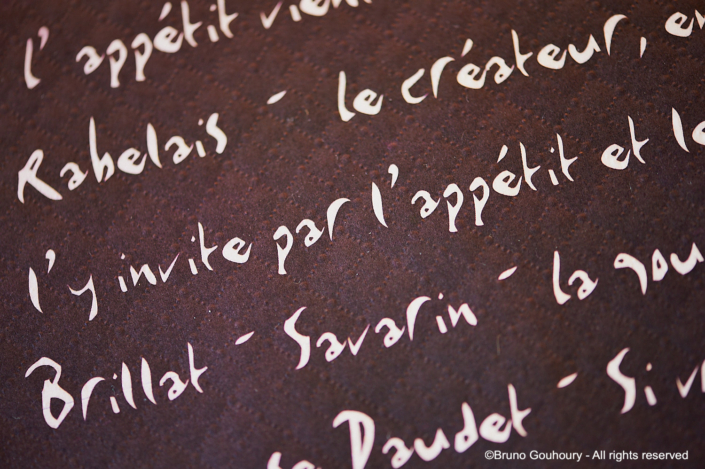 l'appétit vien
Rabelais - le créateur, en
l'y invite par l'appétit et le
Brillat - Savarin - la gou
Daudet - Si v
©Bruno Gouhoury - All rights reserved